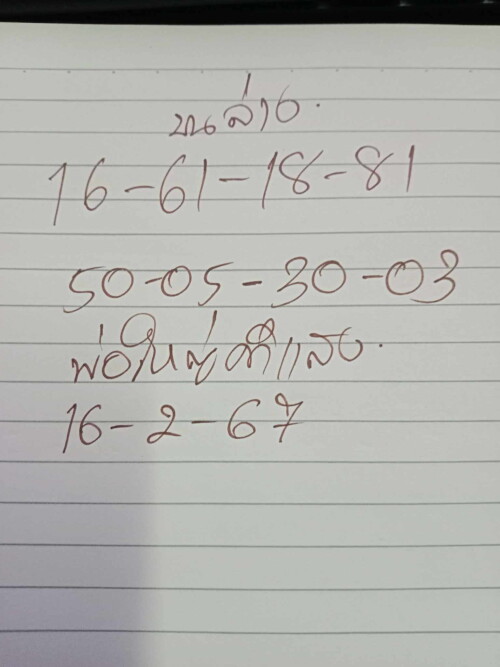 ล่าง.
16-61-18-81
50-05-30-03
พ่อใหญ่คำแสง.
16-2-67